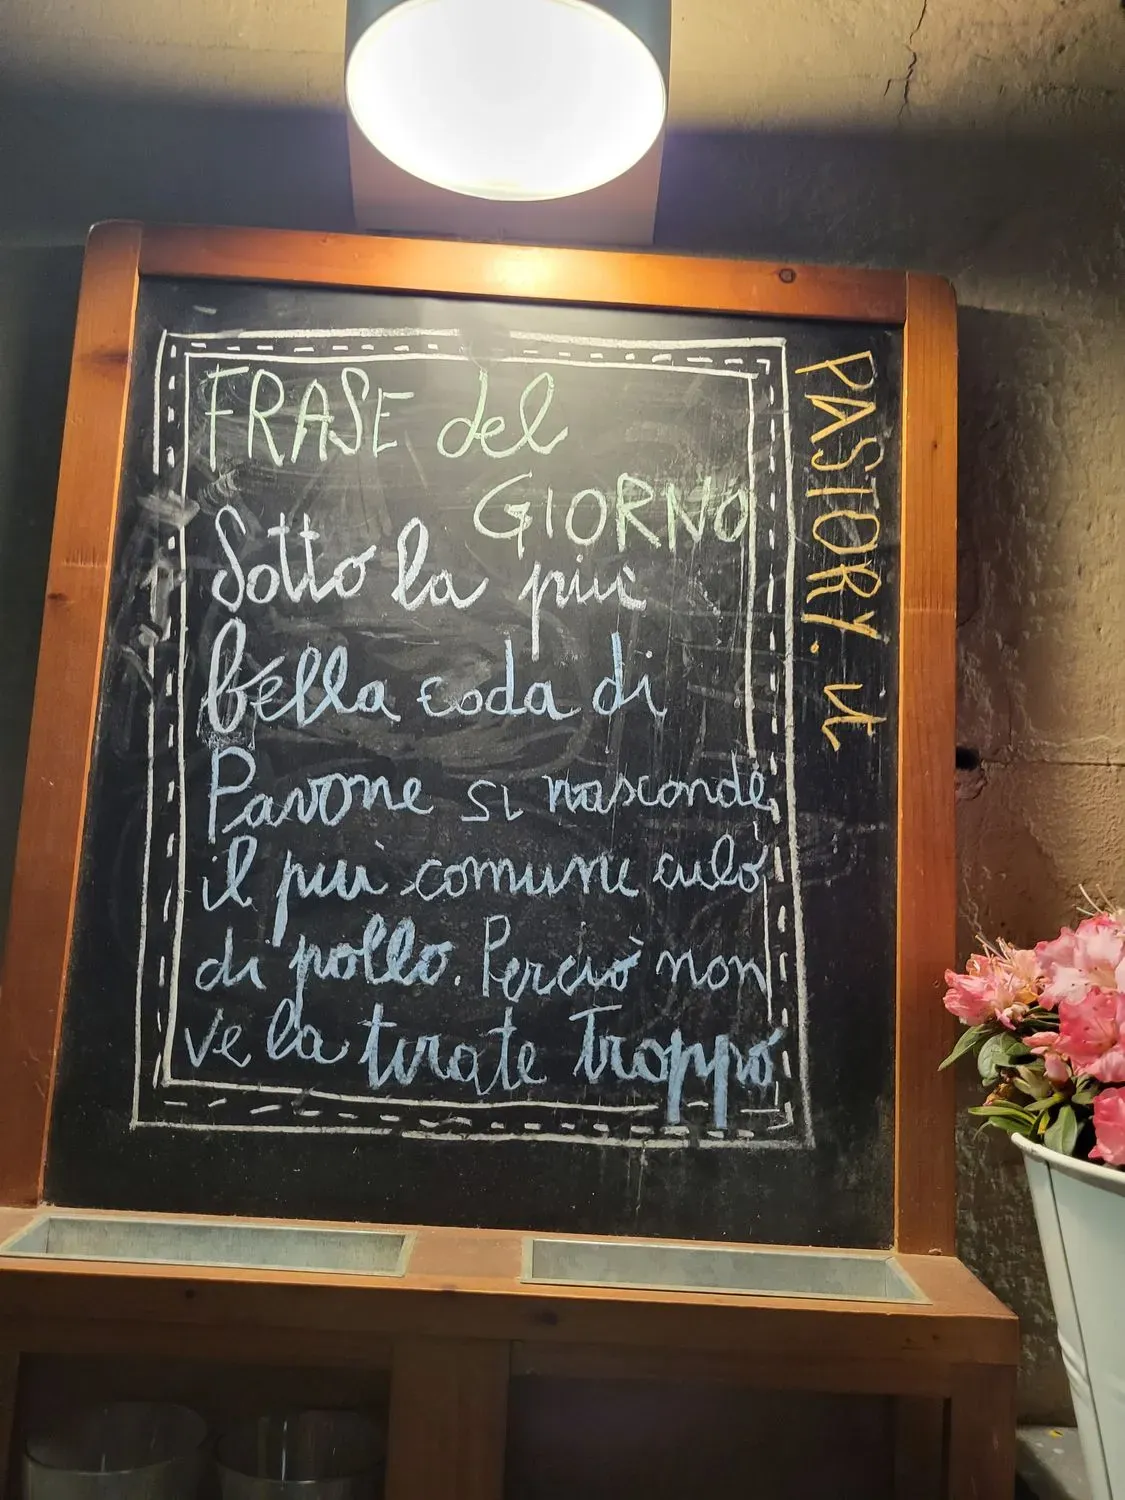 FRASE del
GIORNO
Sotto la più
bella coda di
Pavone si nasconde
il più comune culo
di pollo. Perciò non
ve la tirate troppo
PASTORY.it